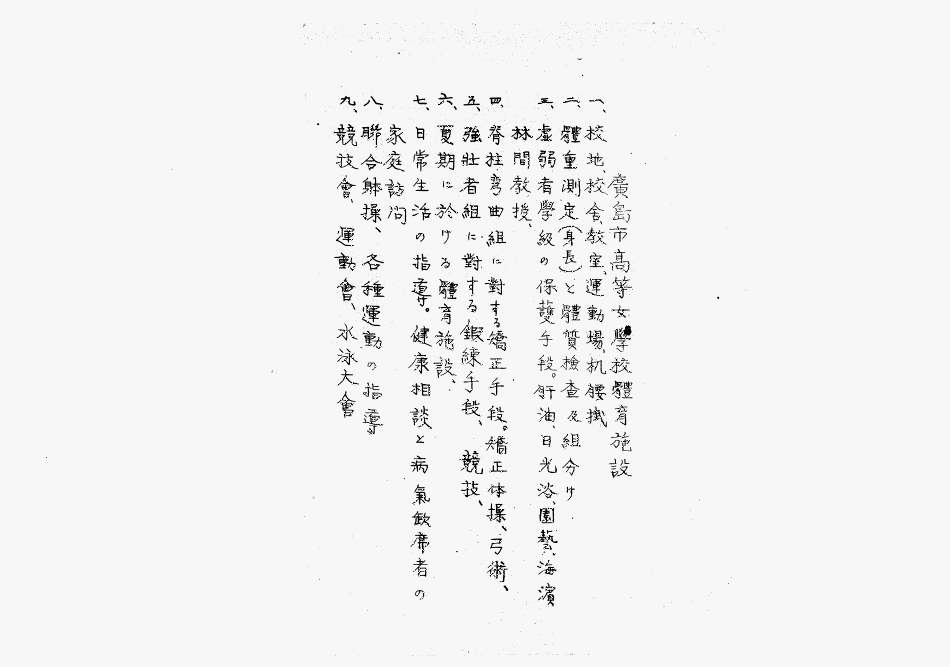 廣島市高等女學校體育施設
一、校地、校舎、教室、運動場、机腰掛
二、體重測定(身長)と體質檢査及組分け
三、虚弱者學級の保護手段。肝油、日光浴、園藝、海濱
林間教授、
四、脊柱弯曲組に對する矯正手段。矯正体操、弓術、
五、強壯者組に對する鍛練手段、競技、
六、夏期に於ける體育施設、
七、日常生活の指導。健康相談と病氣欽席者の
家庭訪问
八、聯合躰操、各種運動の指導
九、競技會、運動會、水泳大會